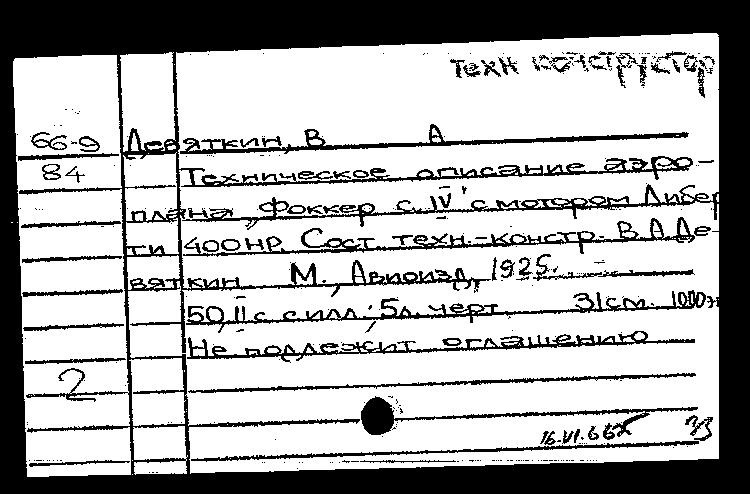 Техн конструктор
66-9 Девяткин, В А
84 Техническое описание аэро-
плана „Фоккер С. IV" с мотором Либер
ти 400 HP. Сост. техн.-констр. В.А.Де-
вяткин М., Авиоизд, 1925.
50, II с с илл.; 5л. черт. 31см. 1000э
Не подлежит оглашению
2
16.VI.66г 33